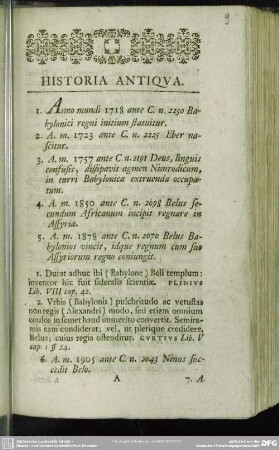 9
HISTORIA ANTIQVA.
1. Anno mundi 1718 ante C. n. 2230 Ba-
bylonici regni initium statuitur.
2. A. m. 1723 ante C. n. 2225 Eber na-
scitur.
3. A. m. 1757 ante C. n. 2191 Deus, linguis
confusis, dissipavit agmen Nimrodicum,
in turri Babylonica extruenda occupa-
tum.
4. A. m. 1850 ante C. n. 2098 Belus se-
cundum Africanum incipit regnare in
Assyria.
5. A. m. 1878 ante C. n. 2070 Belus Ba-
bylonios vincit, idque regnum cum suo
Assyriorum regno coniungit.
1. Durat adhuc ibi (Babylone) Beli templum:
inventor hic fuit sideralis scientiæ. PLINIVS
Lib. VIII cap. 42.
2. Vrbis (Babylonis) pulchritudo ac vetustas
non regis (Alexandri) modo, sed etiam omnium
oculos in semet haud immerito convertit. Semira-
mis eam condiderat; vel, ut plerique credidere,
Belus; cuius regia ostenditur. CVRTIVS Lib. V
cap. 1 § 24.
6. A. m. 1905 ante C. n. 2043 Ninus suc-
cedit Belo.
A 7. A.